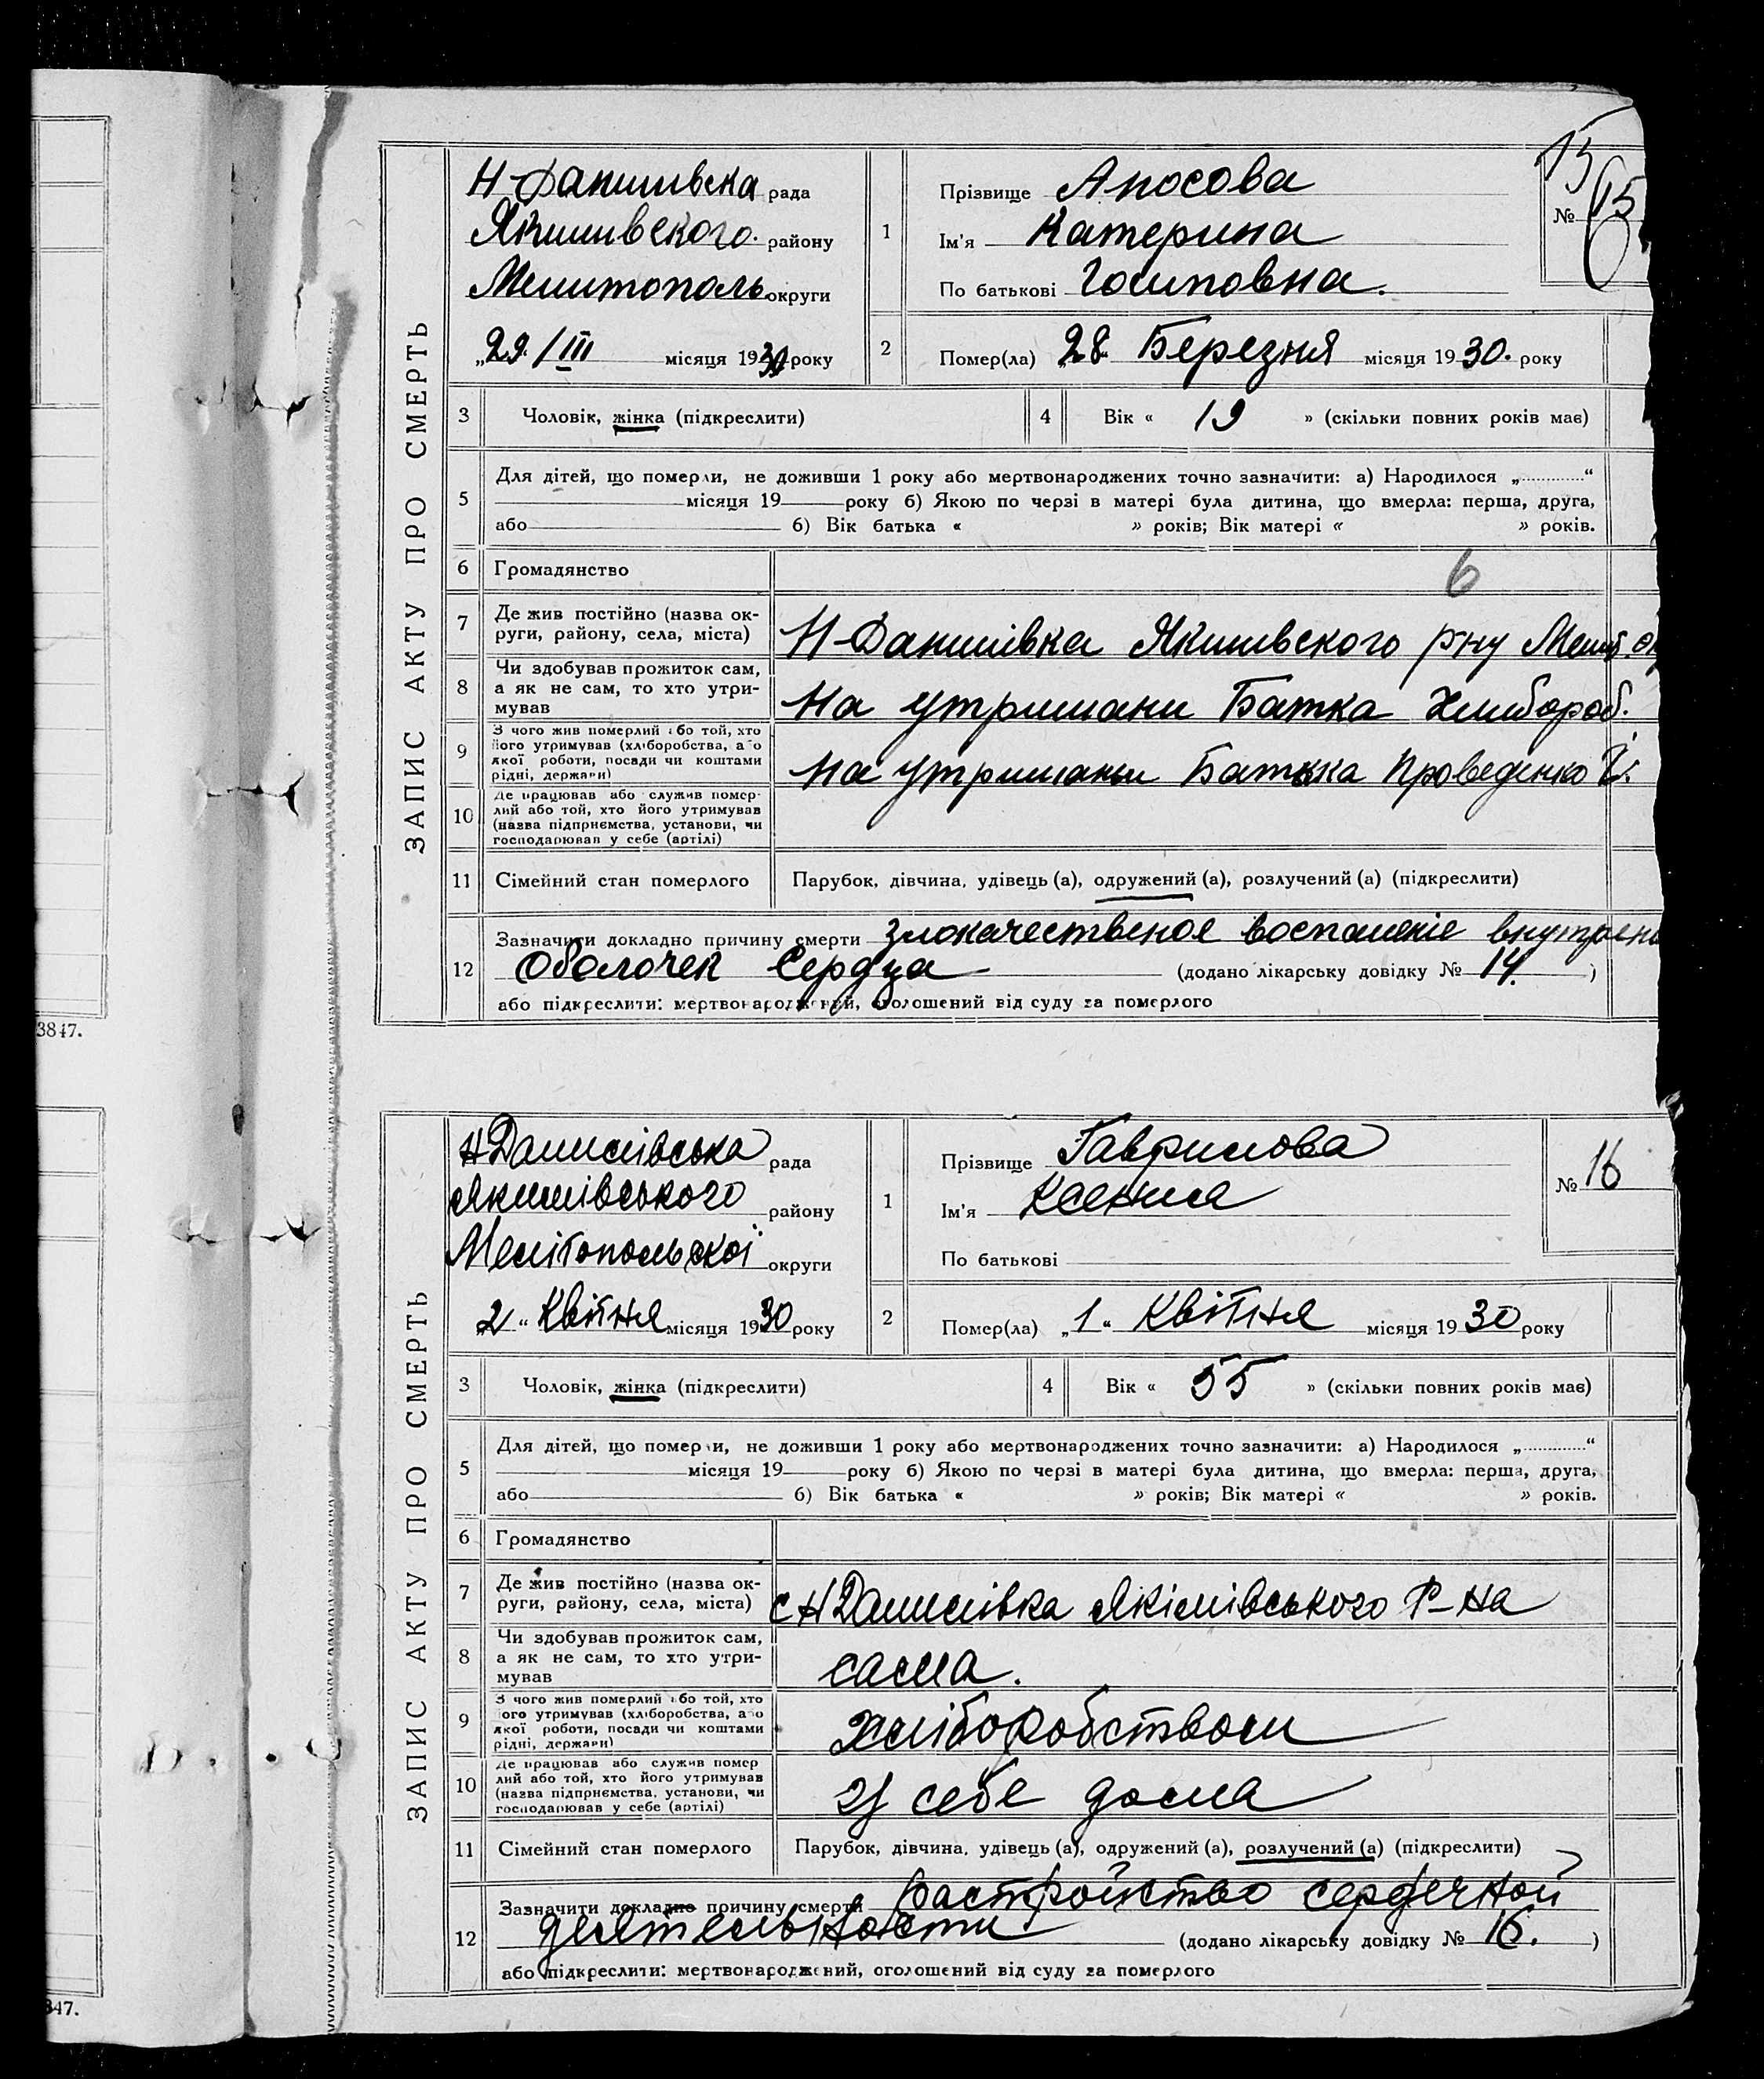 ЗАПИС АКТУ ПРО СМЕРТЬ
Н-Данилівска рада
Якимивского району
Мелитополь округи
„29./III місяця 1930 року
1
Прізвище Аносова
Ім'я Катерина
По батькові Іосиповна.
15
№ 15
2
Помер(ла) „28. Березня місяця 1930. року
3 Чоловік, жінка (підкреслити)
4 Вік « 19 » (скільки повних років має)
5 Для дітей, що померли, не доживши 1 року або мертвонароджених точно зазначити: а) Народилося „ “
місяця 19 року б) Якою по черзі в матері була дитина, що вмерла: перша, друга,
або б) Вік батька « » років; Вік матері « » років.
6 Громадянство
6
7 Де жив постійно (назва ок-
руги, району, села, міста) Н-Данилівка Якимивского рну Мелит.
8 Чи здобував прожиток сам,
а як не сам, то хто утри-
мував На утримани Батка Хлибороб.
9 З чого жив померлий або той, хто
його утримував (хліборобства, або
якої роботи, посади чи коштами
рідні, держави) На утриманьи Батька Проведенко І.
10 Де працював або служив помер-
лий або той, хто його утримував
(назва підприємства, установи, чи
господарював у себе (артілі)
11 Сімейний стан померлого Парубок, дівчина, удівець (а), одружений (а), розлучений (а) (підкреслити)
12 Зазначити докладно причину смерти злокачественое воспаление внутрен
оболочек Сердца (додано лікарську довідку № 14. )
або підкреслити: мертвонароджений, оголошений від суду за померлого
3847.
ЗАПИС АКТУ ПРО СМЕРТЬ
НДанилівська рада
Якимівського району
Мелітопольскої округи
„2“ Квітня місяця 1930 року
1
Прізвище Гаврилова
Ім'я Ксенія
По батькові
№ 16
2
Помер(ла) „1“ Квітня місяця 1930 року
3 Чоловік, жінка (підкреслити)
4 Вік « 55 » (скільки повних років має)
5 Для дітей, що померли, не доживши 1 року або мертвонароджених точно зазначити: а) Народилося „ “
місяця 19 року б) Якою по черзі в матері була дитина, що вмерла: перша, друга,
або б) Вік батька « » років; Вік матері « » років.
6 Громадянство
7 Де жив постійно (назва ок-
руги, району, села, міста) с НДанилівка Якімівського Р-на
8 Чи здобував прожиток сам,
а як не сам, то хто утри-
мував сама.
9 З чого жив померлий або той, хто
ого утримував (хліборобства, або
якої роботи, посади чи коштами
рідні, держави) хліборобством
10 Де працював або служив помер
лий або той, хто його утримував
(назва підприємства, установи, чи
господарював у себе (артілі) У себе дома
11 Сімейний стан померлого Парубок, дівчина, удівець (а), одружений (а), розлучений (а) (підкреслити)
12 Зазначити докладно причину смерти растройство сердечной
деятельности (додано лікарську довідку № 16. )
або підкреслити: мертвонароджений, оголошений від суду за померлого
847.